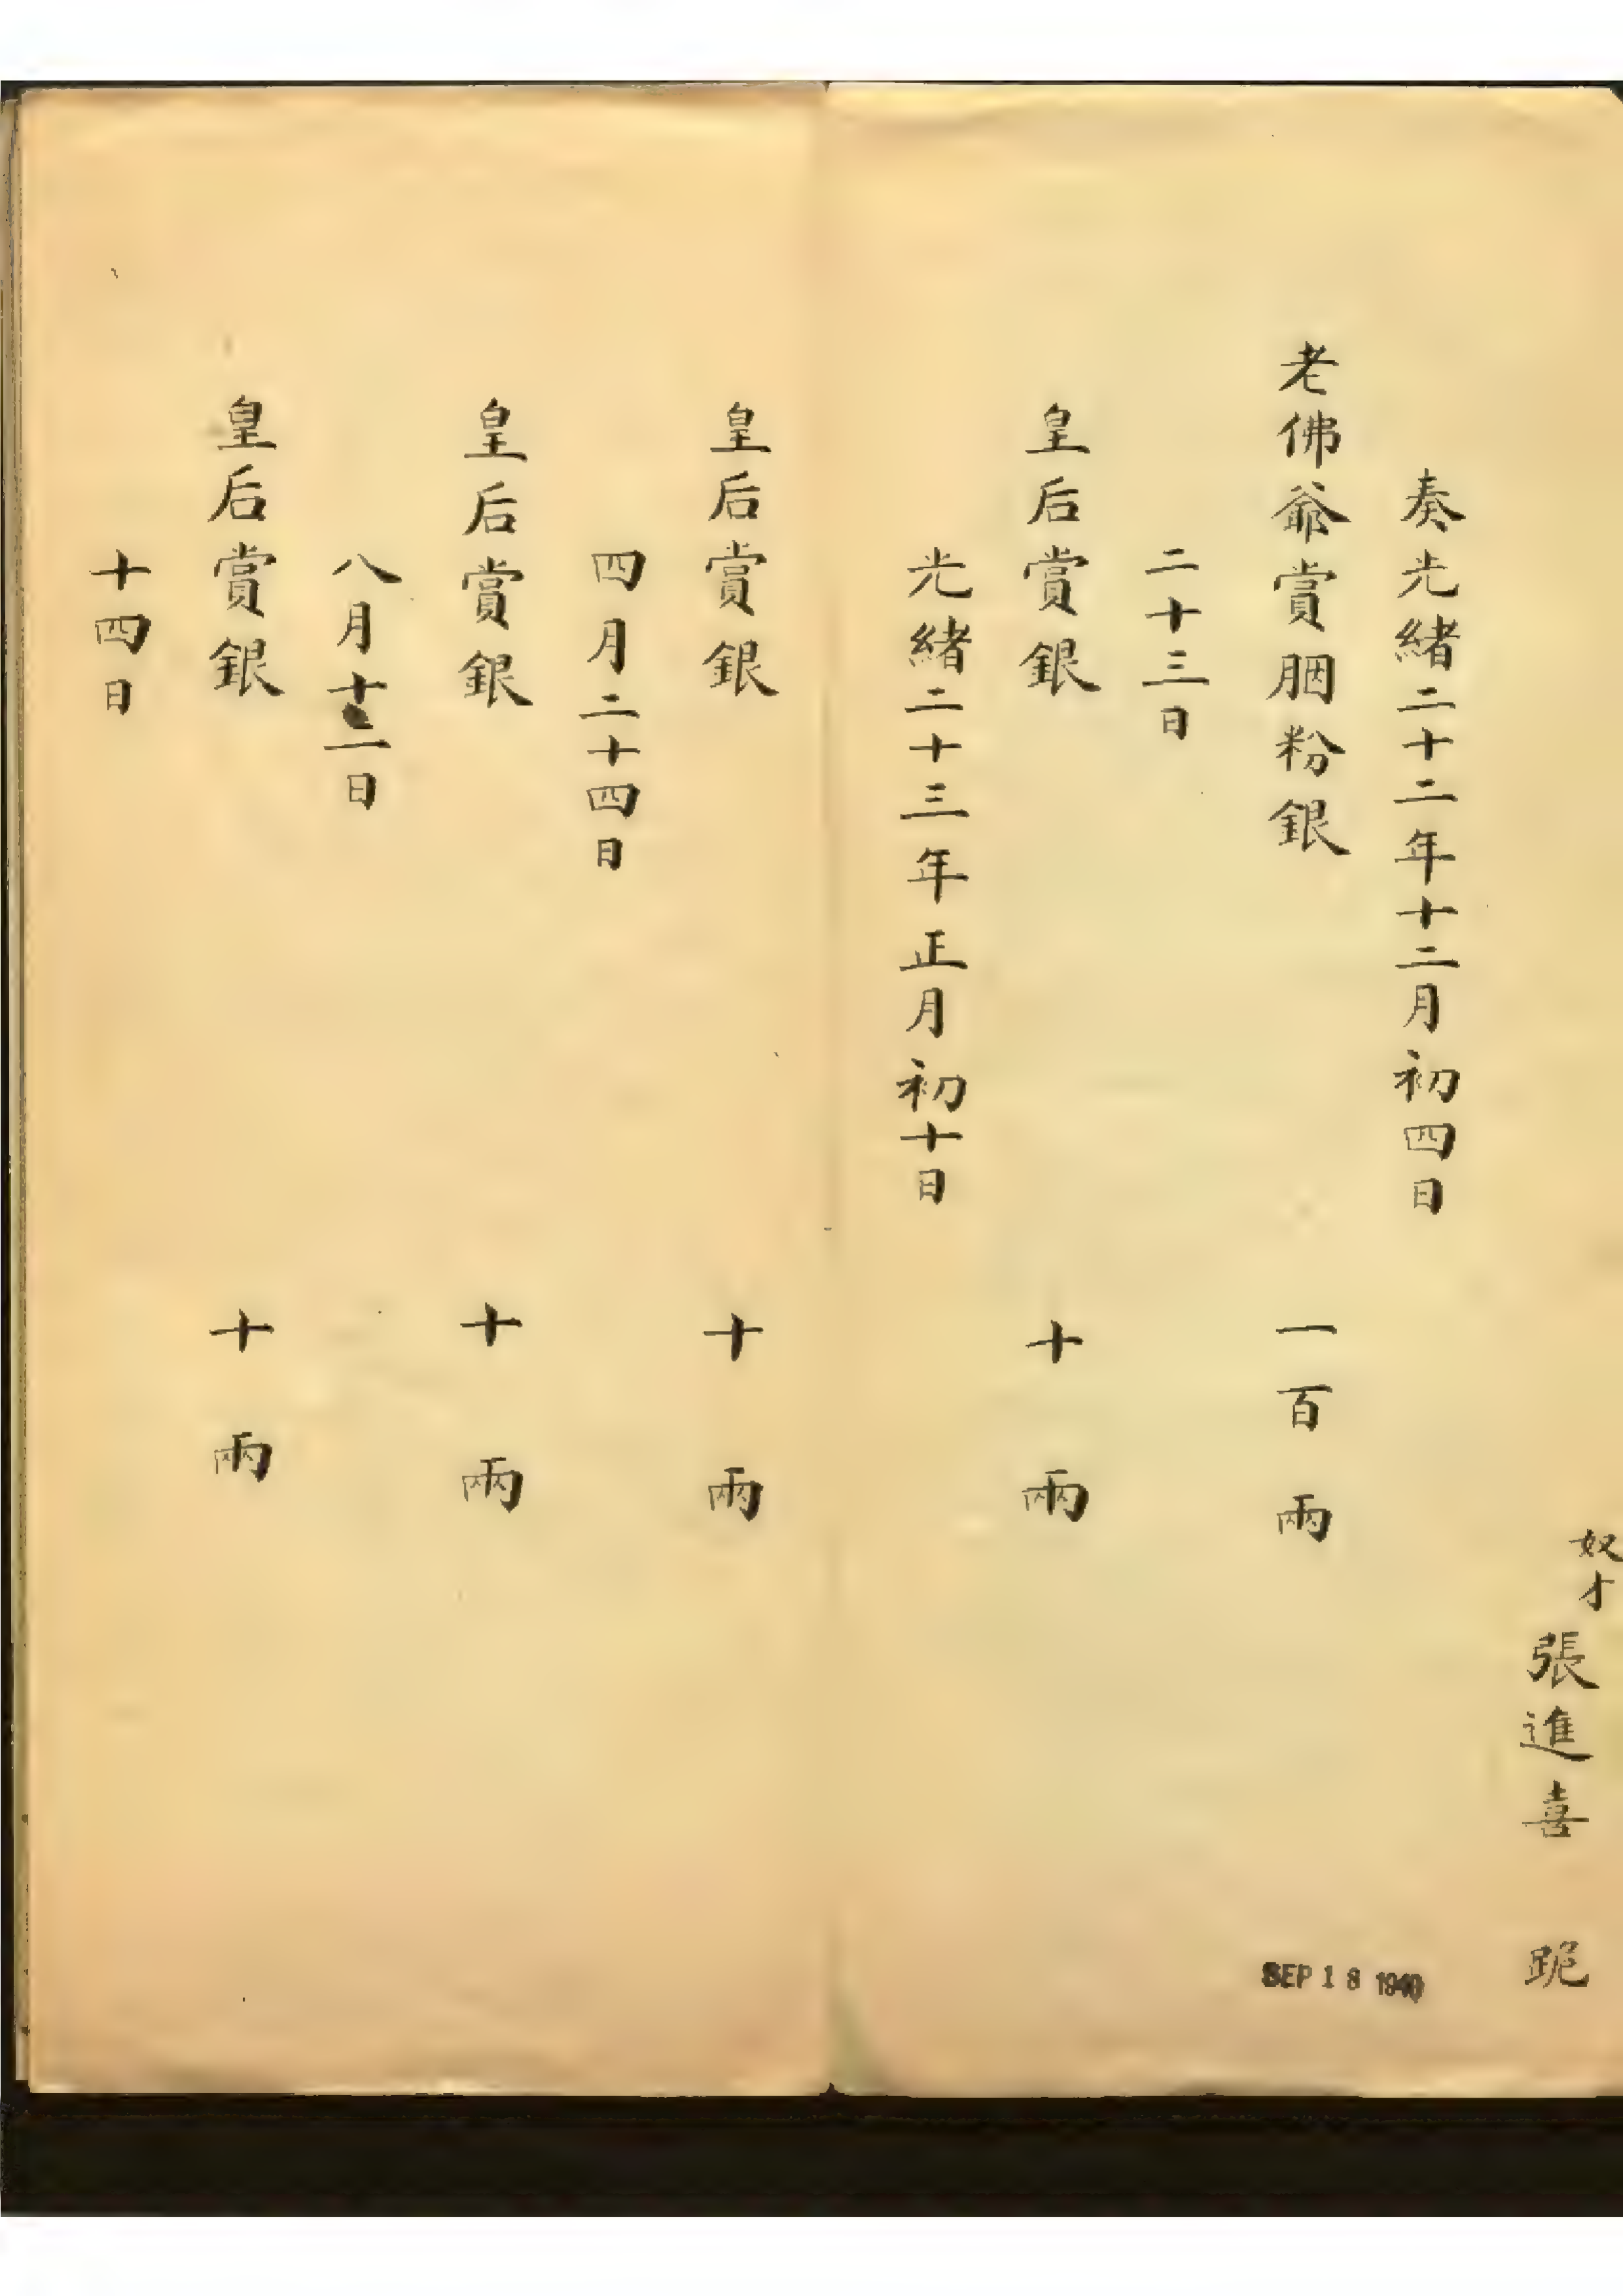 奴才
張進喜 跪
奏光緒二十二年十二月初四日
老佛爺賞胭粉銀 一百兩
二十三日
皇后賞銀 十兩
光緒二十三年正月初十日
皇后賞銀 十兩
四月二十四日
皇后賞銀 十兩
八月十二日
皇后賞銀 十兩
十四日
SEP 18 1940